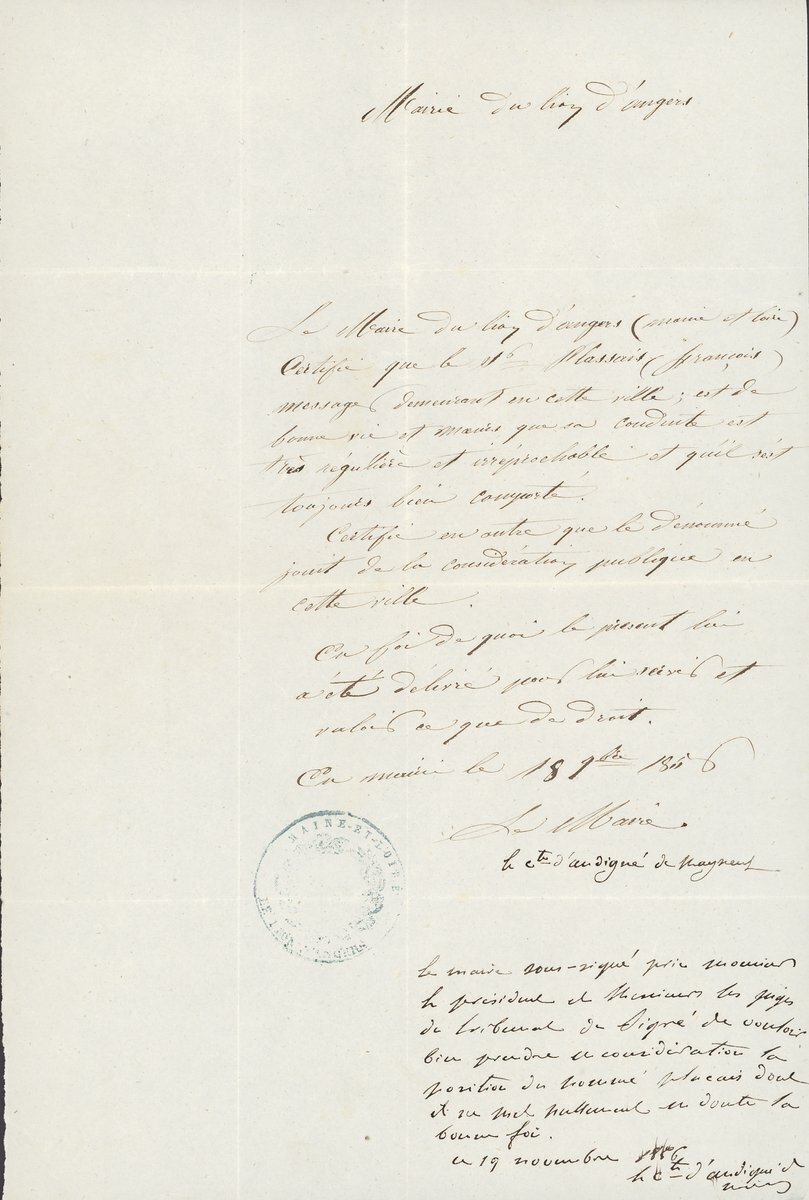 Mairie du Lion d'angers
Le Maire du lion d'angers (maine et loire)
Certifie que le Sr Plassais (françois)
messager demeurant en cette ville, est de
bonne vie et mœurs que sa conduite est
très régulière et irréprochable et qu'il s'est
toujours bien comporté.
Certifie en outre que le dénommé
jouit de la considération publique en
cette ville.
En foi de quoi le présent lui
a été délivré pour lui servir et
valoir ce que de droit.
En mairie le 18 9bre 1856
Le Maire
le cte d'andigné de
MAINE-ET-LOIRE
LE LION D'ANGERS
le maire sous-signé prie monsieur
le président et Messieurs les juges
du tribunal de Segré de vouloir
bien prendre en considération la
position du nommé placais dont
il ne met nullement en doute la
bonne foi.
ce 19 novembre
le cte d'andigné de